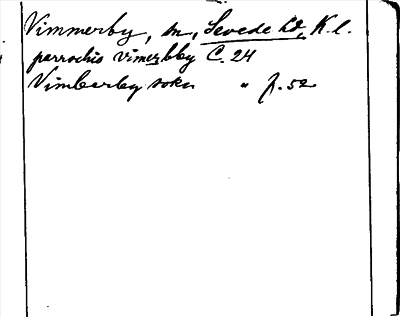 Vimmerby, sn, Sevede hd, K.l.
parrochio vimerbby C. 24
Vimberby sokn " f. 52